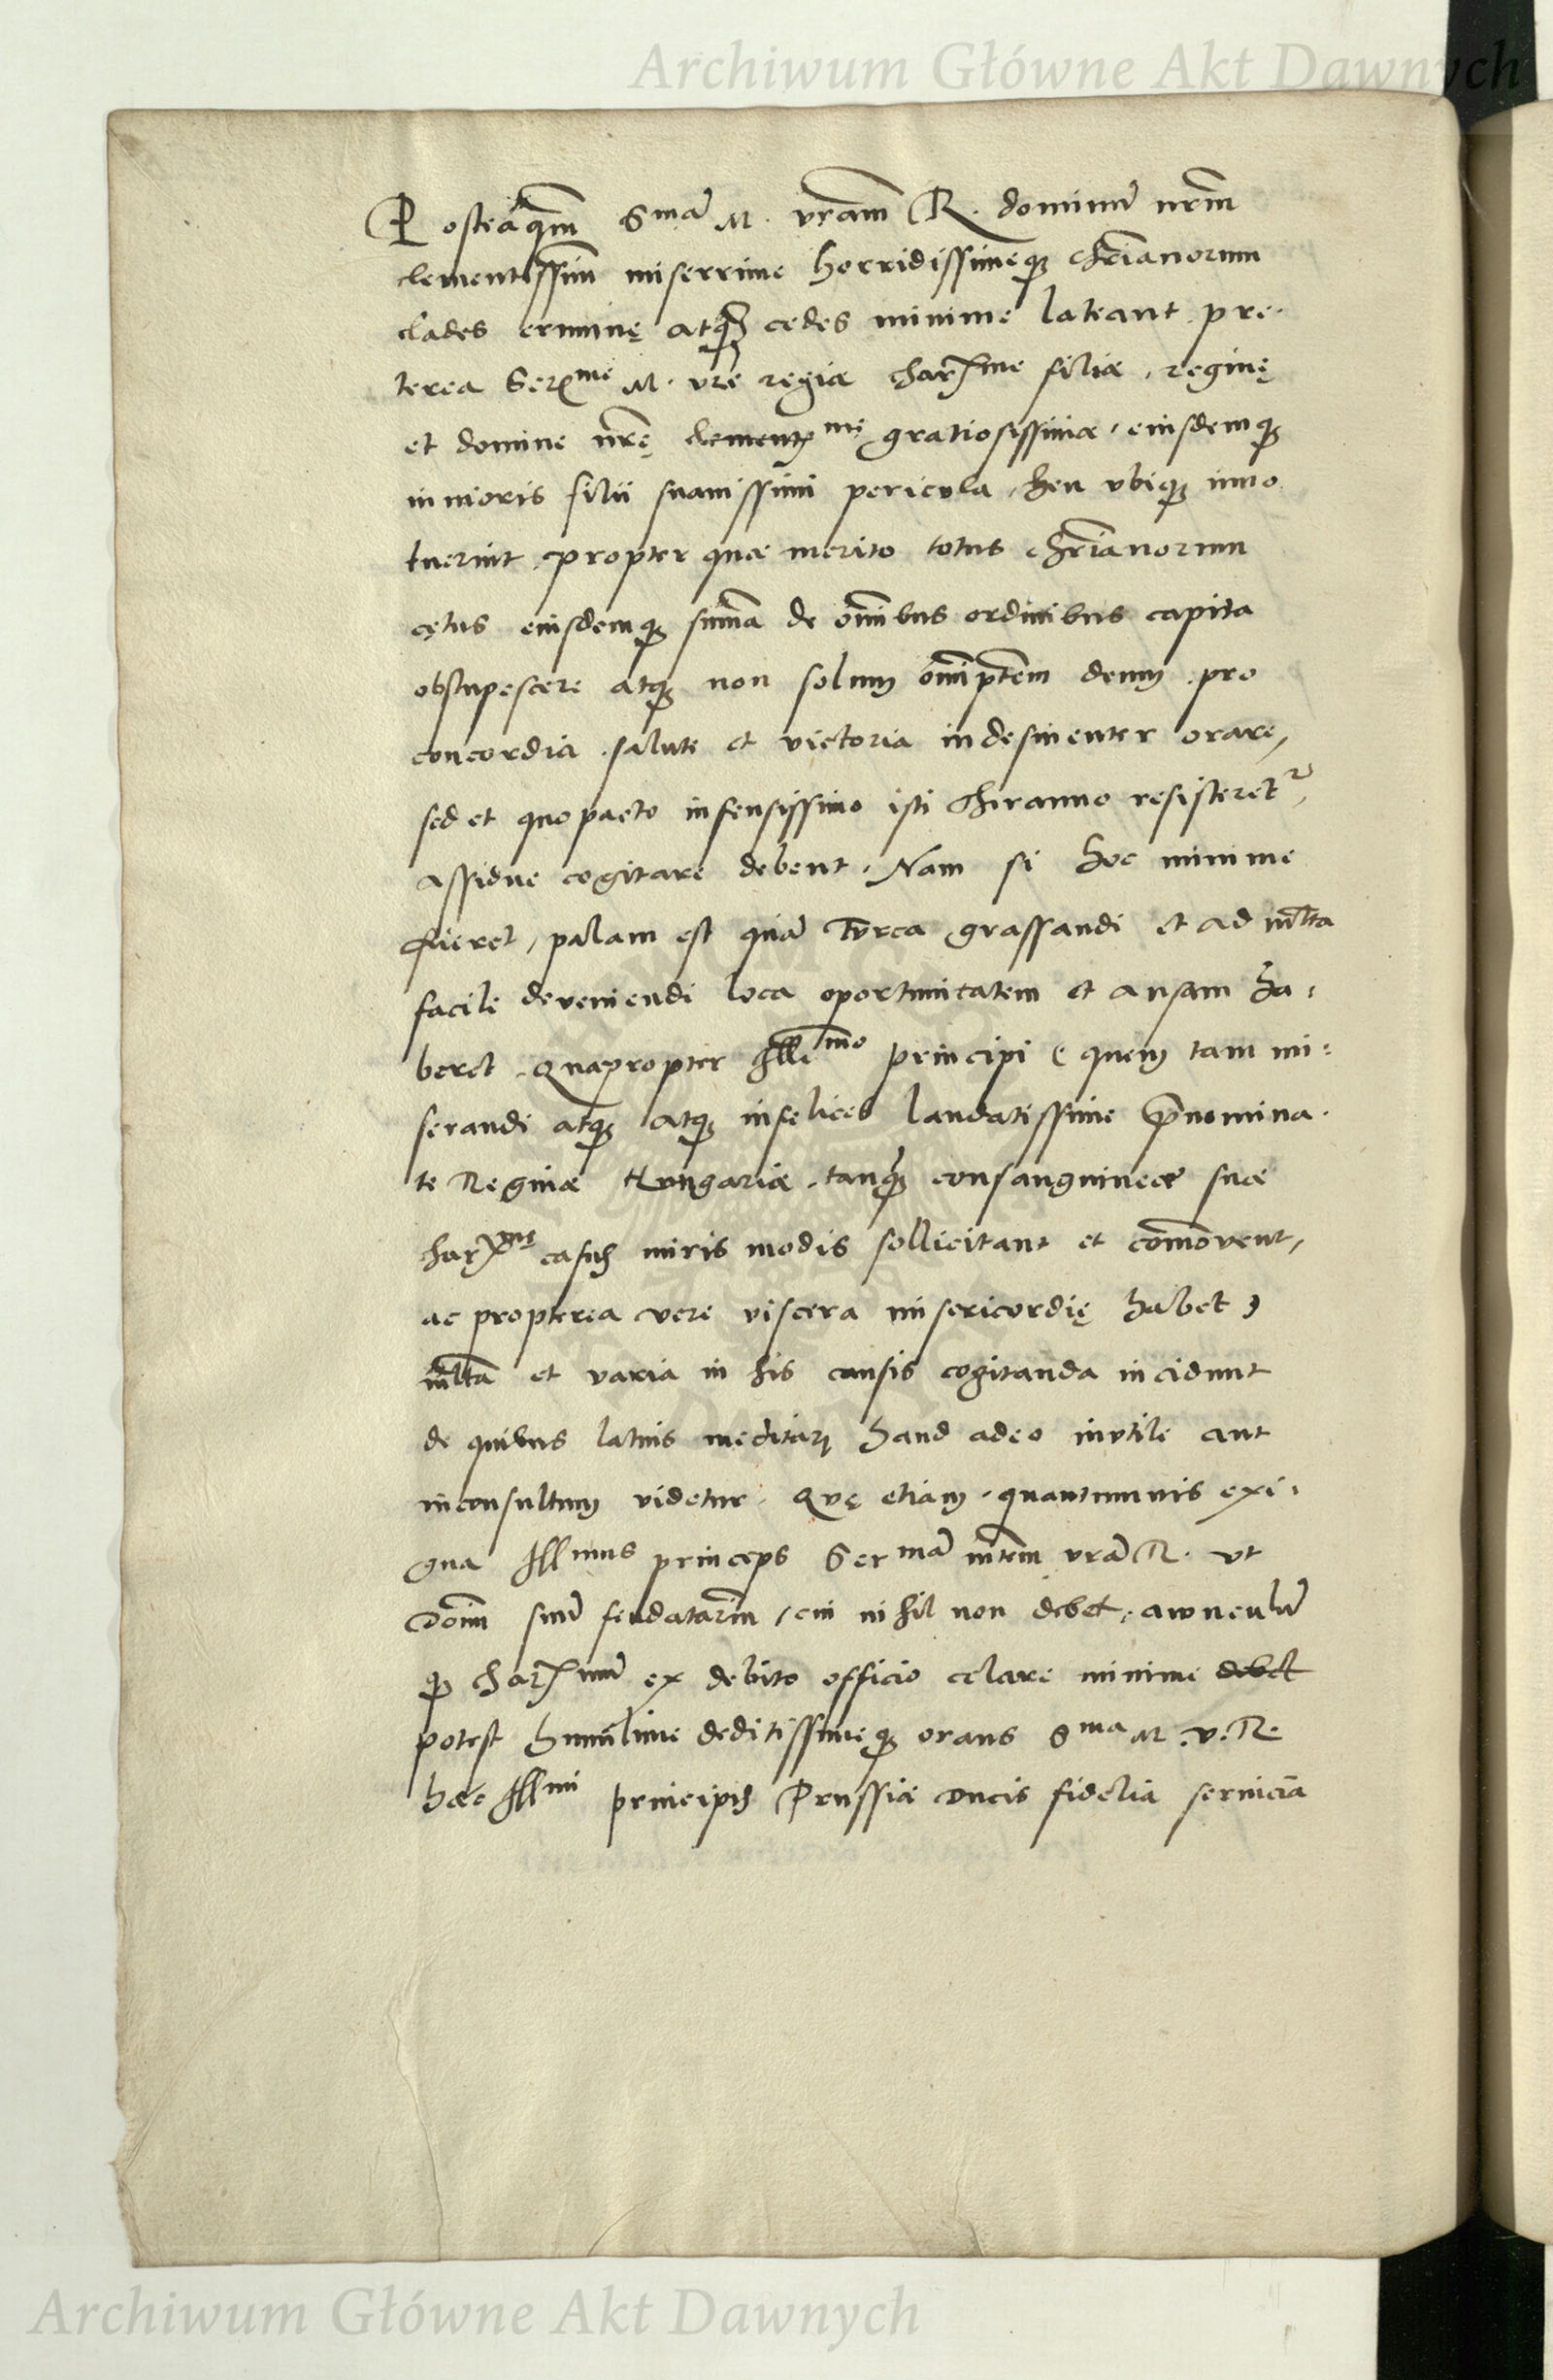 Archiwum Główne Akt Dawnych
Posteaq̃m Smã M. vrãm R. dominũ nrm̃
clementissim̃ miserrime horridissimeq3 chr̃ianorum
clades erumnę atq3 cedes minime lateant. pre.
terea Serme M. vrẽ regiæ charme filiæ, reginę
et domine nrę̃ clementmę gratiosissimæ, eiusdemq3
minoris filii suauissimi pericula, heu vbiq3 inno
tuerint. propter quæ merito totus chr̃ianorum
cętus eiusdemq3 sum̃a de om̃ibus ordinibus capita
obstupescere atq3 non solum om̃iptẽm deum. pro
concordia. salute et victoria indesinenter orare,
sed et quo pacto infensissimo isti Thiranno resisteret2,
assidue cogitare debent. Nam si hoc minime
fieret, palam est quã Turca grassandi et ad mlt̃a
facile deveniendi loca oportunitatem et ansam ha,
beret. Quapropter Illmo principi (quem tam mi:
serandi atq3 atq3 infelices laudatissime p̃nomina.
te Reginæ Hungariæ. tanq3 consanguineæ suæ
charmę casus miris modis sollicitant et com̃ovent,
ac propterea vere viscera misericordię habet)
mlt̃a et varia in his causis cogitanda incidunt
de quibus latius meditari haud adeo invtile aut
inconsultum videtur. Quę etiam. quantumuis exi,
gua Illmus princeps Sermã mtẽm vrã R. vt
Dom̃ suũ feudatarm̃, cui nihil non debet, awnculũ
q3 charmũ ex debito officio celare minime debet
potest humilime deditissimeq3 orans Sma M. v. R.
hæc Illmi principis Prussiæ Ducis fidelia seruicia
Archiwum Główne Akt Dawnych